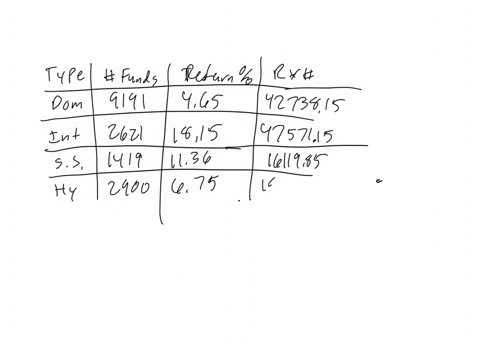 Type # Funds Return % R x #
Dom 9191 4.65 42738.15
Int 2621 18.15 47571.15
S.S. 1419 11.36 16119.85
Hy 2900 6.75 18